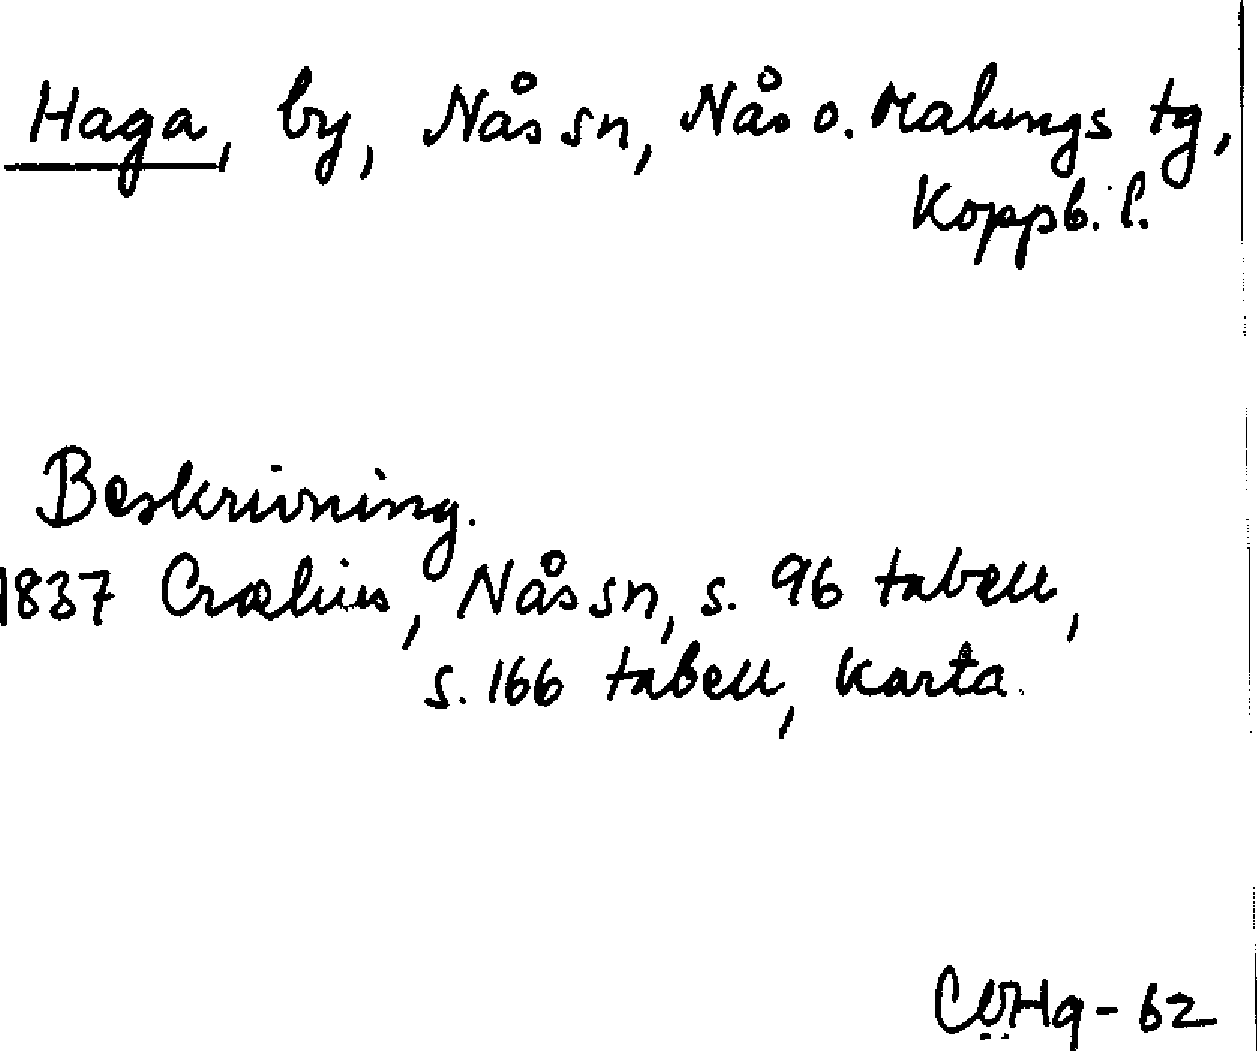 Haga, by, Nås sn, Nås o. Malungs tg,
Koppb. l.
Beskrivning.
1837 Crælius, Nås sn, s. 96 tabell,
s. 166 tabell, karta.